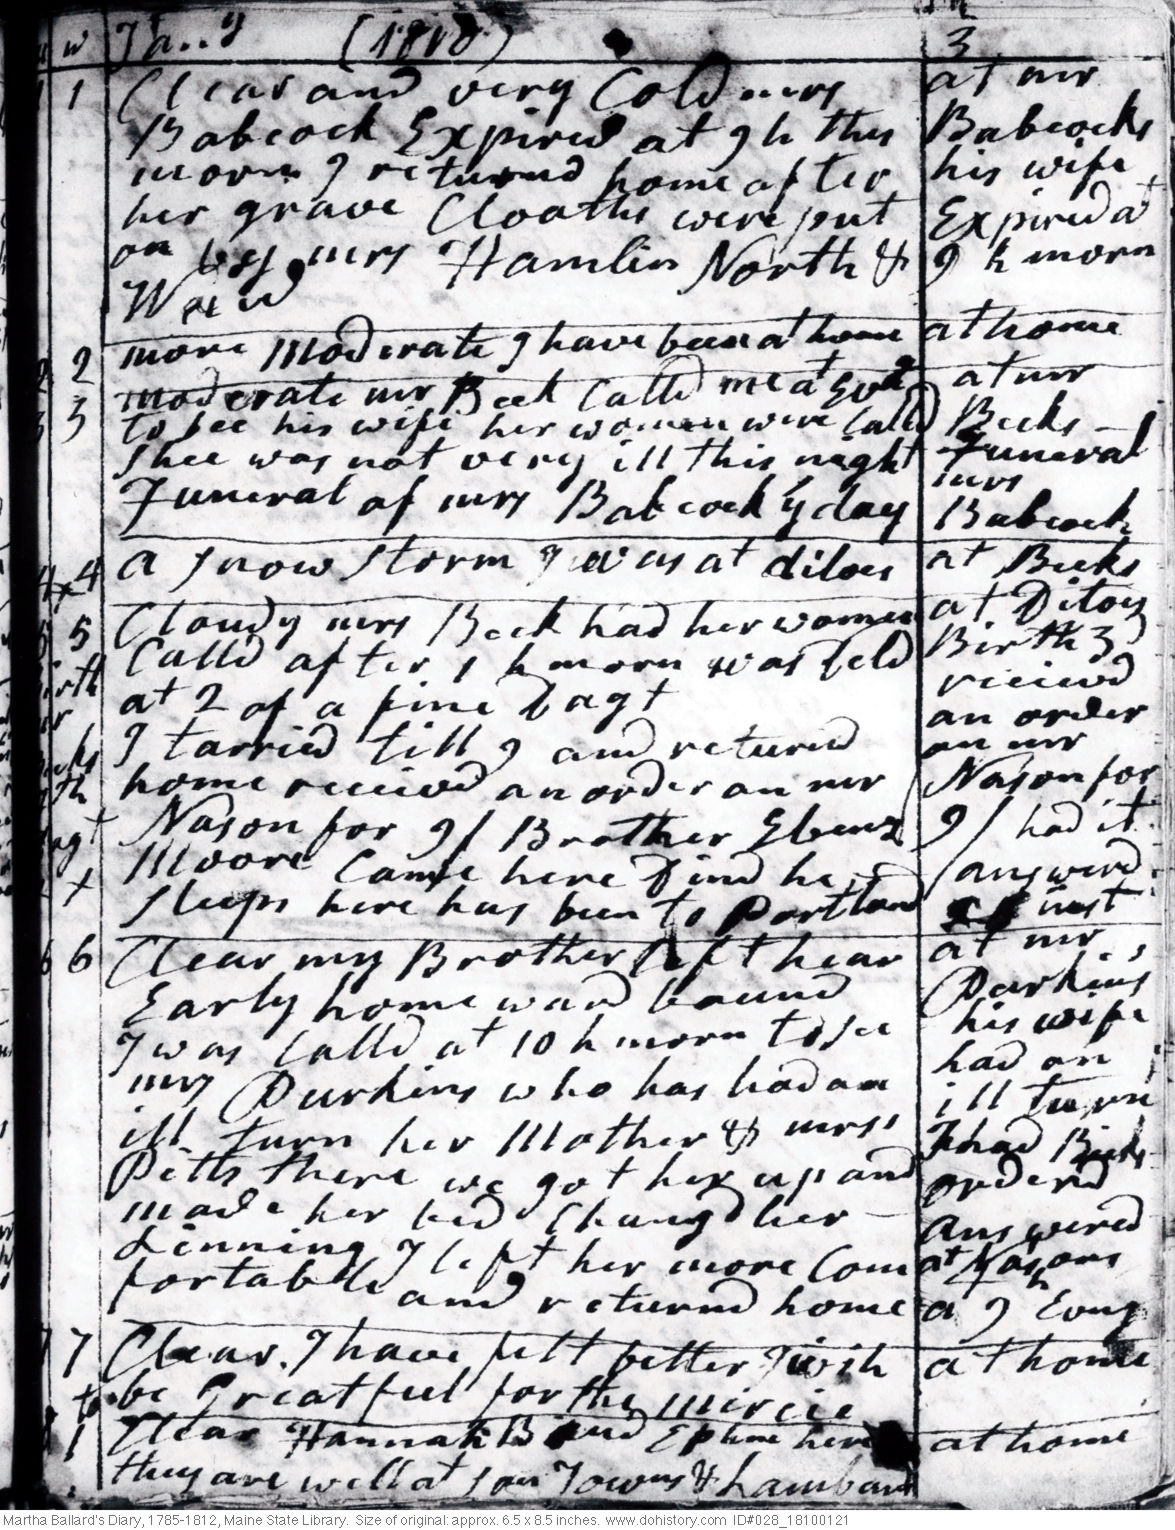 w Jany (1810)
1 Clear and very Cold mrs
Babcock Expired at 9 h this
morn I returned home after
her grave Cloaths were put
on by mrs Hamlin North &
Ward
2 more moderate I have been at home
3 moderate mr Beek Calld me at Evng
to see his wife her women were Calld
Shee was not very ill this night
Funeral of mrs Babcock y day
4 x 4 a snow storm I was at ditoes
5 5 Cloudy mrs Beek had her women
Calld after 1 h morn & was feld
at 2 of a fine dagt
I tarried till 9 and returnd
home received an order on mr
Nason for 9/ Brother Ebenz
Moore Came here Dind he
sleeps here has been to Portland
6 6 Clear my Brother left hear
Early homeward bound
I was Calld at 10 h morn to see
mrs Purkins who has had an
ill turn her Mother & mrs
Pitts there we got her up and
made her bed Changd her
Linning I left her more Com
fortable and returnd home
7 7 Clear. I have felt better I wish
to be Greatfull for the mircie
1 Clear Hannah B and Ephm here
they are well at son Towns & Lambard
3
at mr
Babcocks
his wife
Expired at
9 h morn
at home
at mr
Beeks
Funeral
mrs
Babcock
at Beeks
at Ditoes
Birth 3
recievd
an order
on mr
Nason for
9/ had it
answerd
inst
at mr
Purkins
his wife
had an
ill turn
I had
orderd
answered
at Nasons
a 9 Evng
at home
at home
Martha Ballard's Diary, 1785-1812, Maine State Library. Size of original: approx. 6.5 x 8.5 inches. www.dohistory.com ID#028_18100121